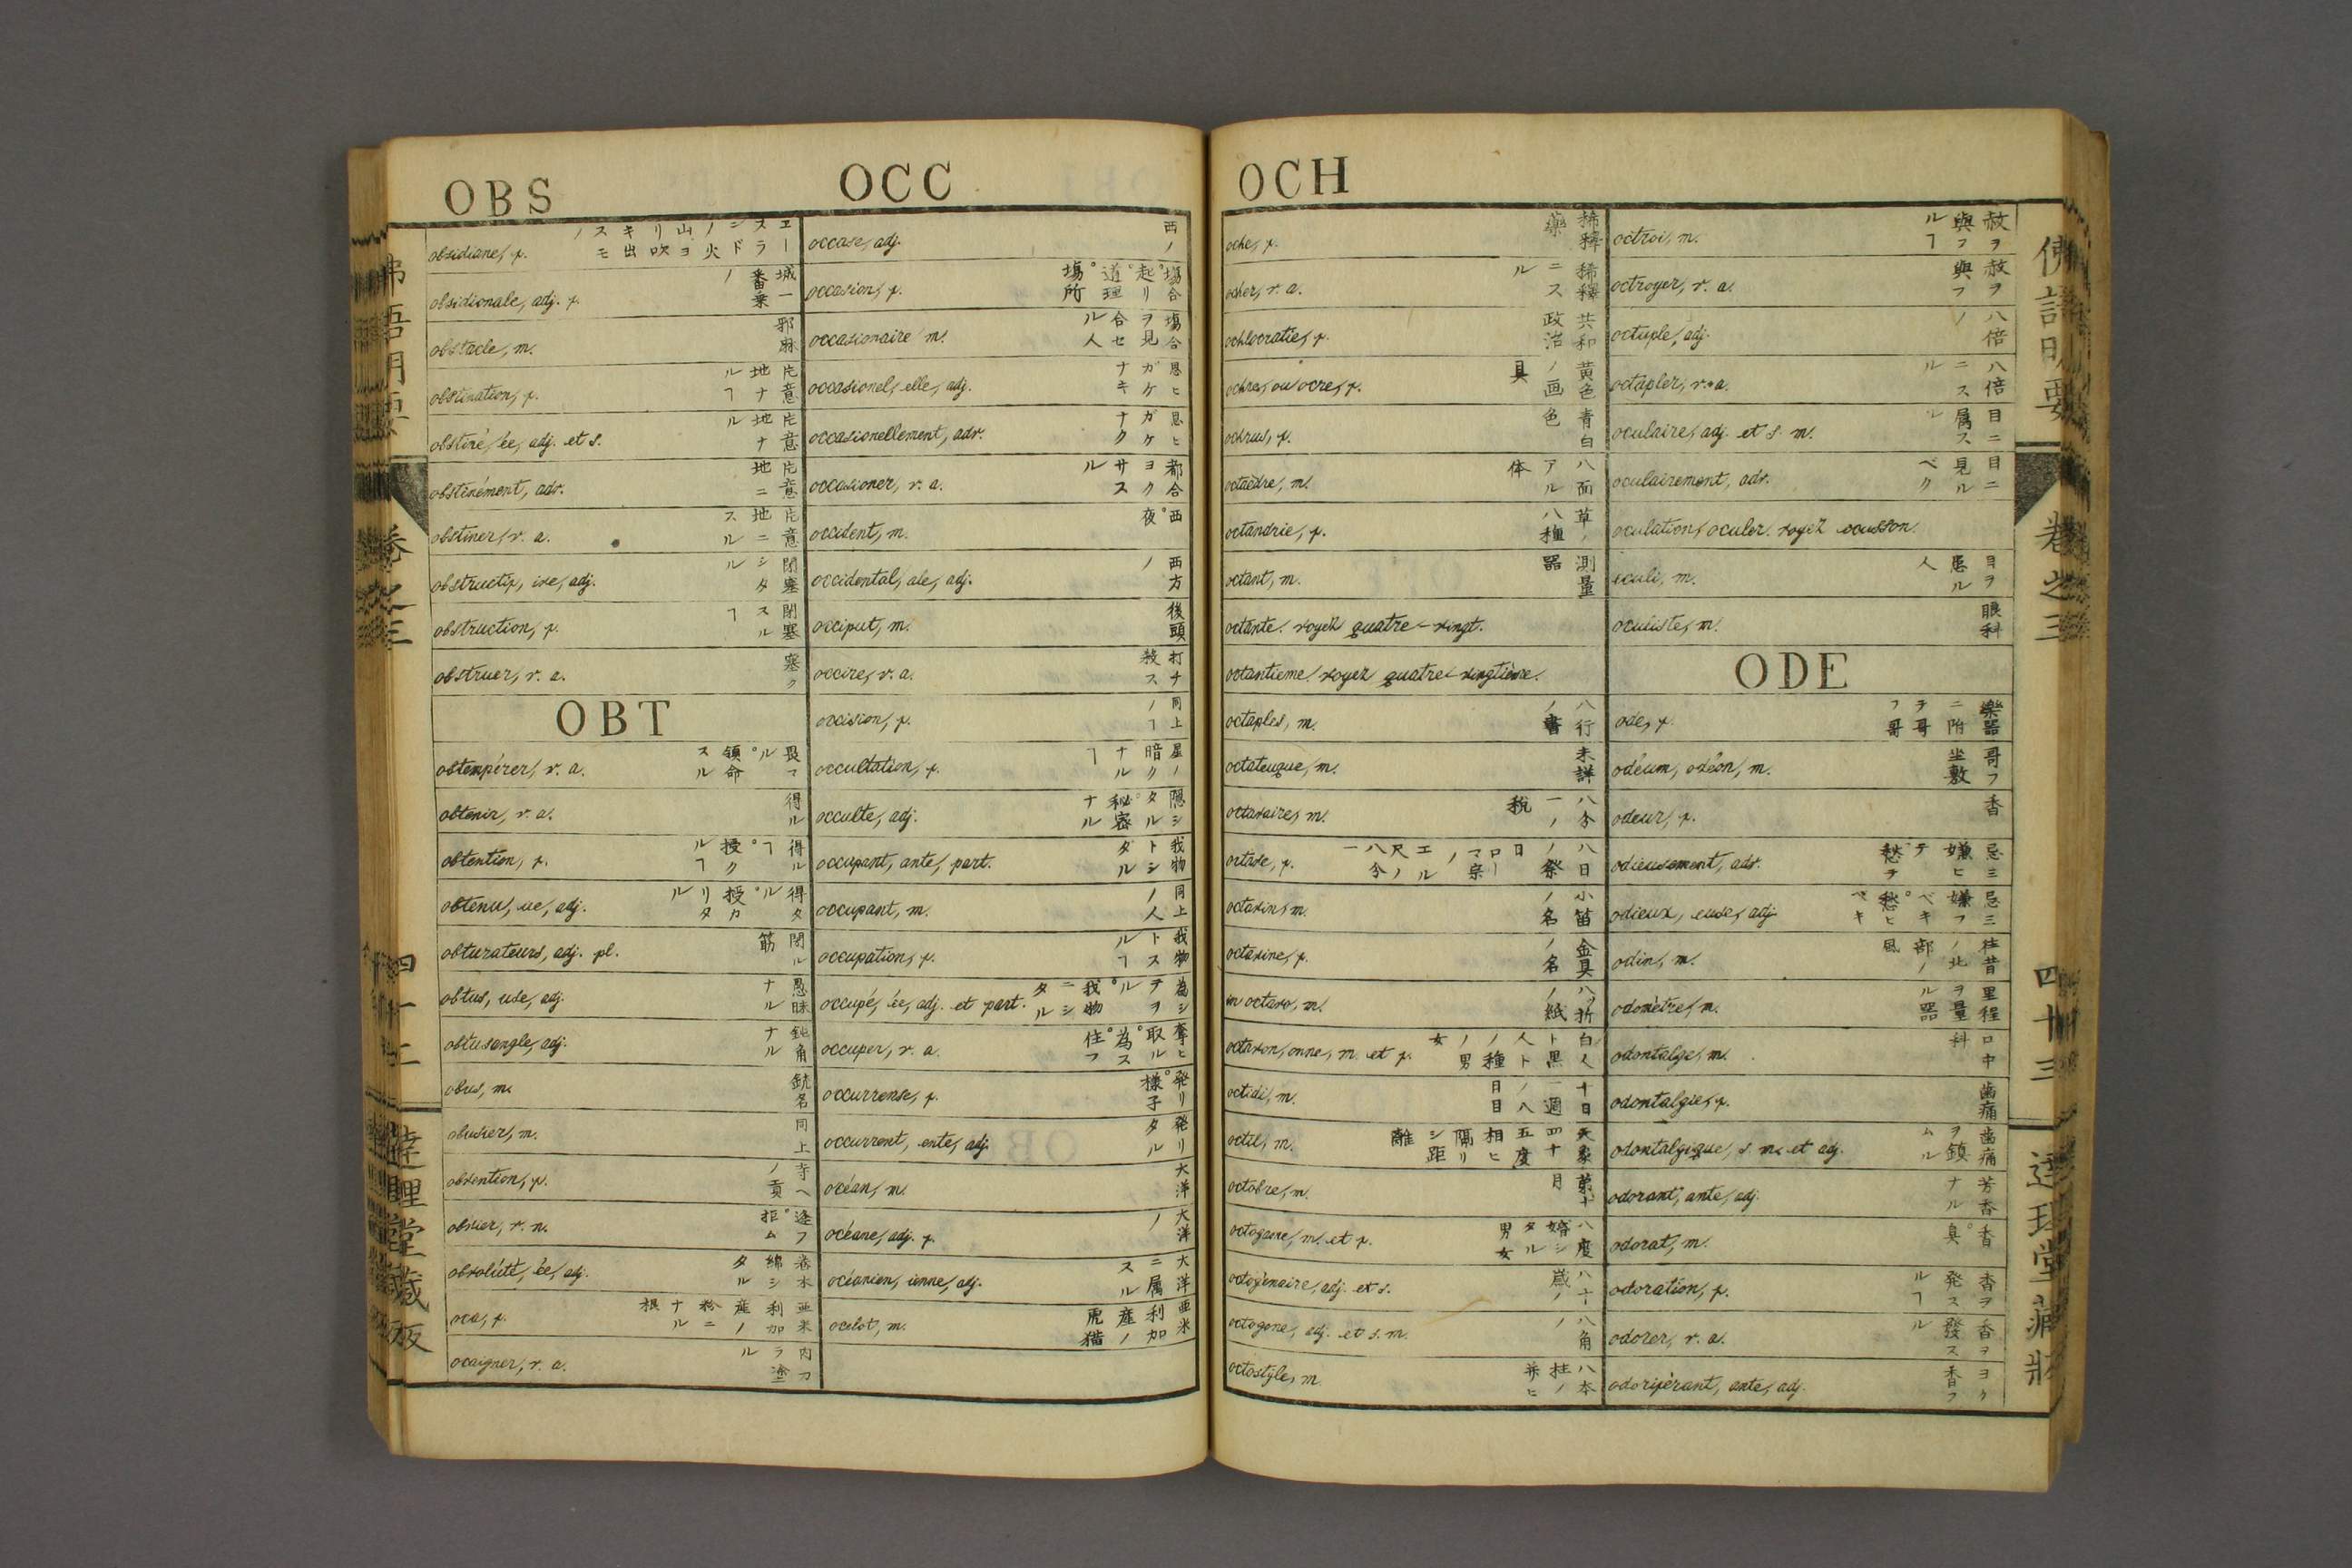 OBS
OCC
obsidiane, f.
obsidionale, adj. f. 城一番乗ノ
obstacle, m. 邪麻
obstination, f. 片意地ナルヿ
obstiné, ée, adj. et s. 片意地ナル
obstinément, adv. 片意地ニ
obstiner, v. a. 片意地ニスル
obstructif, ive, adj. 閉塞シタル
obstruction, f. 閉塞スルヿ
obstruer, v. a. 塞ク
OBT
obtempérer, v. a. 畏マル。領命スル
obtenir, v. a. 得ル
obtention, f. 得ルヿ。授クルヿ
obtenu, ue, adj. 得タル。授カリタル
obturateurs, adj. pl. 閉ル筋
obtus, use, adj. 愚昧ナル
obtusangle, adj. 鈍角ナル
obus, m. 銃名
obusier, m. 同上
obvention, f. 寺ヘノ貢
obvier, v. n. 逢フ。拒ム
obvoluté, ée, adj.
oca, f. 亜米利加産ノ粉ニナル根
ocaigner, v. a. 内ヲ塗ル
occase, adj. 西ノ
occasion, f. 塲合。起リ。道理。塲所
occasionaire m. 塲合ヲ見合セル人
occasionel, elle, adj. 思ヒガケナキ
occasionellement, adv. 思ヒガケナク
occasioner, v. a. 都合ヨクサスル
occident, m. 西。夜
occidental, ale, adj. 西方ノ
occiput, m. 後頭
occire, v. a. 打チ殺ス
occision, f. 同上ノヿ
occultation, f. 星ノ暗クナルヿ
occulte, adj. 隠シタル。秘密ナル
occupant, ante, part. 我物トシダル
occupant, m. 同上ノ人
occupation, f. 我物トスルヿ
occupé, ée, adj. et part. 為シテヲル。我物ニシタル
occuper, v. a. 奪ヒ取ル。為ス。住フ
occurrense, f. 発リ。様子
occurrent, ente, adj. 発リタル
océan, m. 大洋
océane, adj. f. 大洋ノ
océanien, ienne, adj. 大洋ニ属スル
ocelot, m. 亜米利加産ノ虎猫
OCH
oche, f. 稀釋藥
ocher, v. a. 稀釋ニスル
ochlocratie, f. 共和政治
ochre, ou ocre, f. 黄色ノ画具
ochrus, f. 青白色
octaèdre, m. 八面アル体
octandrie, f. 草ノ八種
octant, m. 測量器
octante. voyez quatre-vingt.
octantieme. voyez quatre-vingtième.
octaples, m. 八行ノ書
octateuque, m. 未詳
octavaire, m. 八分一ノ税
octave, f. 八日ノ祭日
octavin, m. 小笛ノ名
octavine, f. 金具ノ名
in octavo, m. 八ツ折ノ紙
octavon, onne, m. et f. 白人ト黒人ト種ノ男女
octidi, m. 十日一週ノ八日目
octil, m. 天象四十五度相ヒ隔リシ距離
octobre, m. 第十月
octogame, m. et f. 八度婚シタル男女
octogénaire, adj. et s. 八十歳ノ
octogone, adj. et s. m. 八角ノ
octostyle, m. 八本柱ノ並ヒ
octroi, m. 赦ヲ與フルヿ
octroyer, v. a. 赦ヲ與フ
octuple, adj. 八倍ノ
octupler, v. a. 八倍ニスル
oculaire, adj. et s. m. 目ニ属スル
oculairement, adv. 目ニ見ルベク
oculation, oculer. voyez ecusson.
oculi, m.
oculiste, m. 眼科
ODE
ode, f. 樂器ニ附テ哥フ哥
odéum, odéon, m. 哥フ坐敷
odeur, f. 香
odieusement, adv. 忌ミ嫌ヒテ
odieux, euse, adj. 忌ミ嫌フベキ。愁ヒベキ
odin, m. 往昔ノ北部ノ風
odomètre, m. 里程ヲ量ル器
odontalge, m. 口中科
odontalgie, f. 歯痛
odontalgique, s. m. et adj. 歯痛ヲ鎮ムル
odorant, ante, adj. 芳香ナル
odorat, m. 香。臭
odoration, f. 香ヲ発スルヿ
odorer, v. a. 香ヲ發スル
odoriférant, ante, adj. ヨク香フ
佛語明要
卷之三
四十三
達理堂藏版